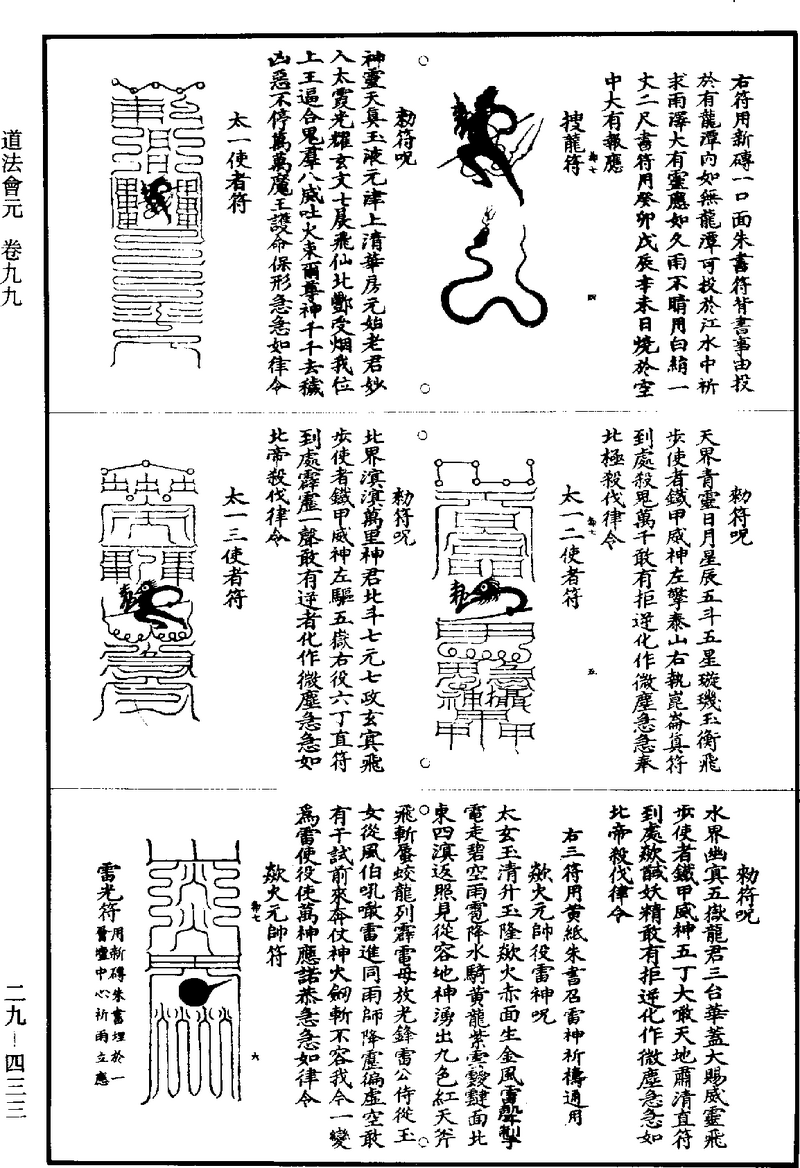 道法會元　卷九九
二九—四三三
右符用新磚一口面朱書符背書事由投
於有龍潭內如無龍潭可投於江水中祈
求雨澤大有靈應如久雨不晴用白絹一
丈二尺書符用癸卯戊辰辛未日燒於空
中大有報應
搜龍符
弗七
四
敕符呪
神靈天真玉液元津上清華房元始老君妙
入太霞光耀玄文士晨飛仙北酆受烟我位
上王逼合鬼羣八威吐火束爾尊神千千去穢
凶惡不停萬萬魔王護命保形急急如律令
太一使者符
敕符呪
天界青靈日月星辰五斗五星璇璣玉衡飛
步使者鐵甲威神左擎泰山右執崑崙真符
到處殺鬼萬千敢有拒逆化作微塵急急奉
北極殺伐律令
太一二使者符
弗七
五
敕符呪
北界溟溟萬里神君北斗七元七政玄冥飛
步使者鐵甲威神左驅五嶽右役六丁直符
到處霹靂一聲敢有逆者化作微塵急急如
北帝殺伐律令
太一三使者符
敕符呪
水界幽冥五嶽龍君三台華蓋大賜威靈飛
步使者鐵甲威神五丁大噉天地肅清直符
到處欻馘妖精敢有拒逆化作微塵急急如
北帝殺伐律令
右三符用黃紙朱書召雷神祈禱通用
欻火元帥役雷神呪
太玄玉清升玉隆欻火赤面生金風雷聲掣
電走碧空雨雹降水騎黃龍紫雲靉靆面北
東四溟返照見從容地神湧出九色紅天斧
飛斬蜃蛟龍列霹電母放光鋒雷公侍從玉
女從風伯吼噉雷進同雨師降靈徧虛空敢
有干試前來奔仗神火劒斬不容我今一變
爲雷使役使萬神應諾恭急急如律令
欻火元帥符
弗七
六
雷光符用新磚朱書埋於一
舊壇中心祈雨立應